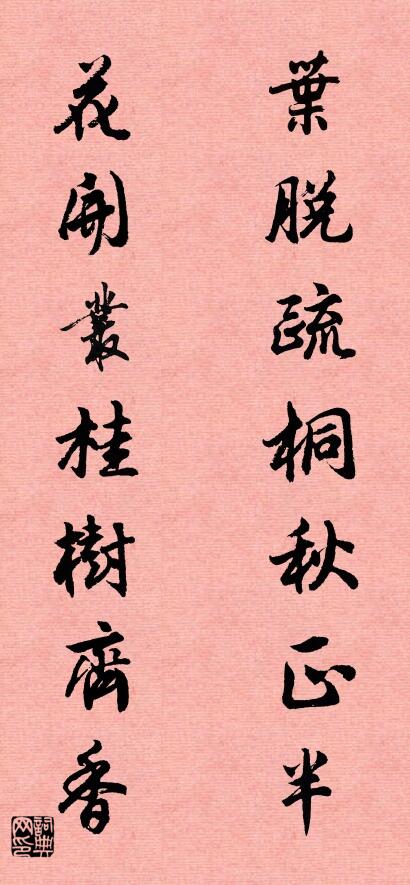 葉脫疏桐秋正半
花開叢桂樹齊香
詞典網印